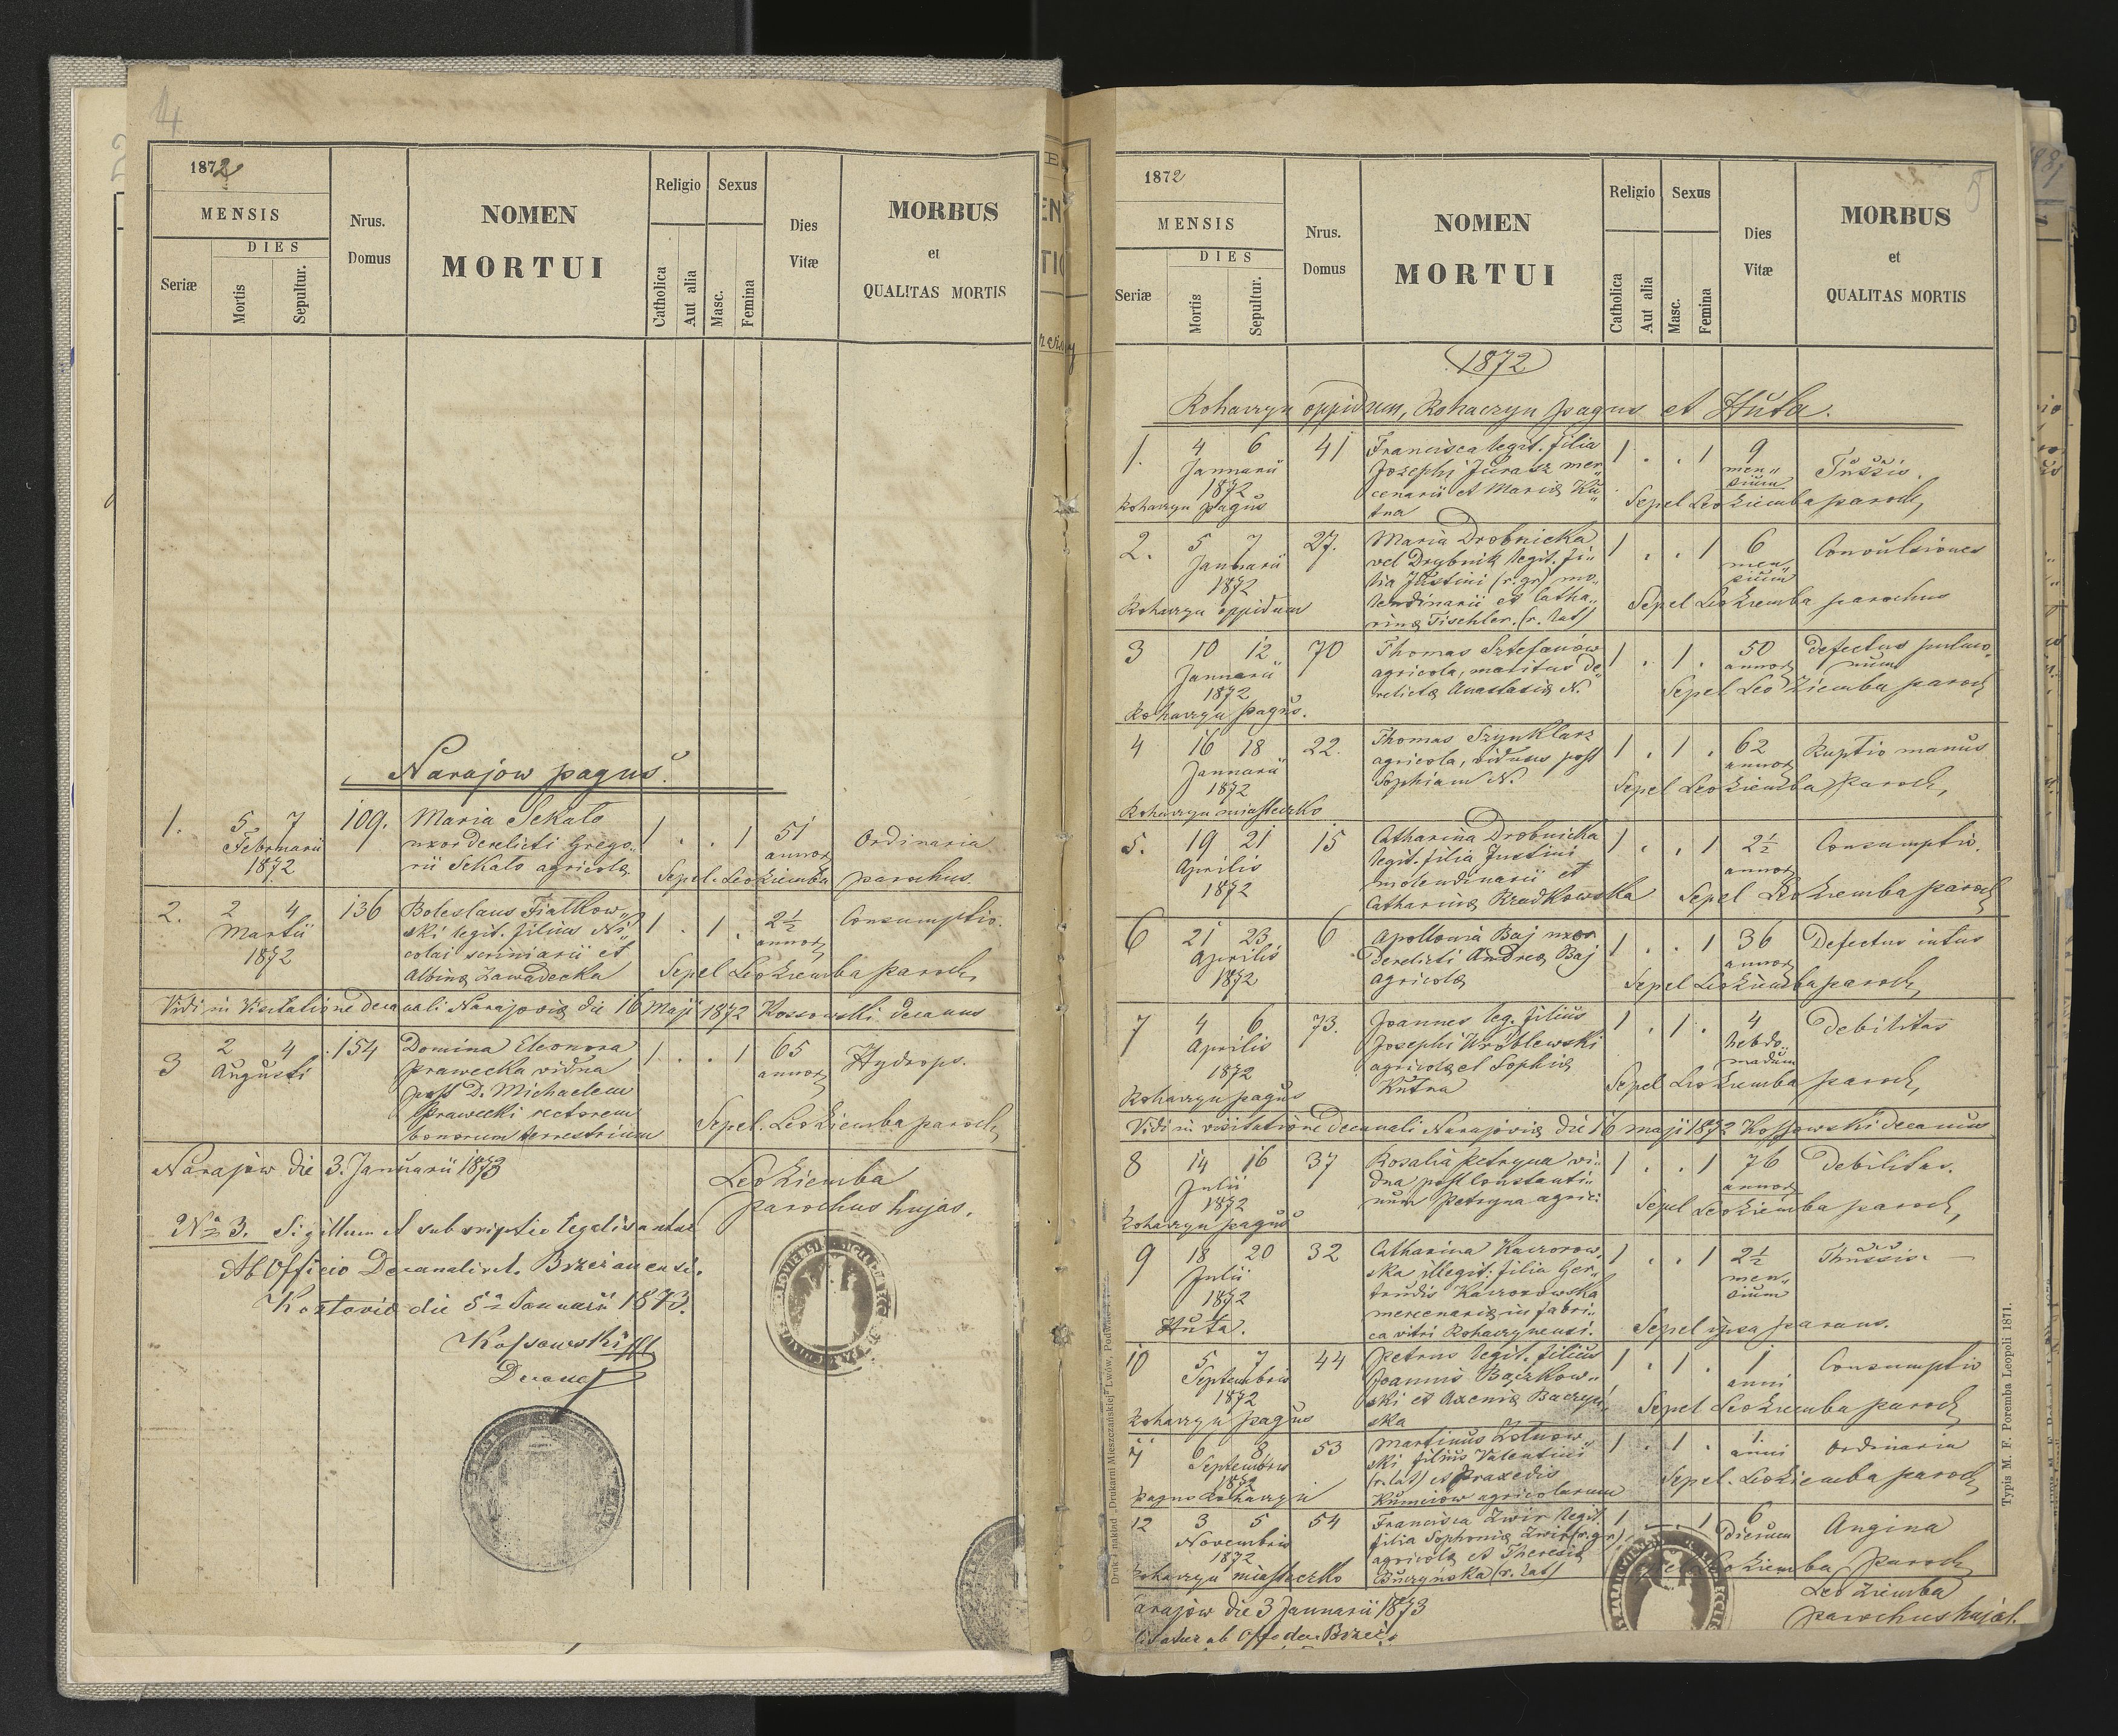 4
1872
MENSIS
DIES
Seriæ
Mortis
Sepultur.
Nrus.
Domus
NOMEN
MORTUI
Religio
Catholica
Aut alia
Sexus
Masc.
Femina
Dies
Vitæ
MORBUS
et
QUALITAS MORTIS
Narajow pagus.
1. 5 7 109. Maria Sekato 1 . . 1 51 Ordinaria
Februarii uxor derelicti Grego„ annor
1872 rii Sekato agricolæ Sepel. Leo Ziemba parochus.
2. 2 4 136 Boleslaus Fiałkow„ 1 . 1 . 2½ Consumptio.
Martii ski legit. filius Ni„ annor
1872 colai scriniarii et
Albinæ Zawadecka Sepel Leo Ziemba paroch,
Vidi in Visitatione decanali Narajoviæ die 16 Maji 1872 Kossowski decanus
3 2 4 154 Domina Eleonora 1 . . 1 65 Hydrops.
Augusti Prawecka vidua annor
post D. Michaelem
Prawecki rectorem
bonorum terrestrium Sepel. Leo Ziemba paroch,
Narajów die 3. Januarii 1873
Leo Ziemba
parochus hujas.
No 3. Sigillum et subscriptio legalisantur
Ab Officio Decanali r. l. Brzeżanensi.
Kozloviæ die 5 Januarii 1873.
Kossowski
Decanus
5
1872
MENSIS
DIES
Seriæ
Mortis
Sepultur.
Nrus.
Domus
NOMEN
MORTUI
Religio
Catholica
Aut alia
Sexus
Masc.
Femina
Dies
Vitæ
MORBUS
et
QUALITAS MORTIS
1872
Kohaczyn oppidum, Rohaczyn pagus et Huta.
1. 4 6 41 Francisca legit. filia 1 . . 1 9 Tussis.
Januarii Josephi Jurasz mer„ men„
1872 cenarii et Mariæ Ku„ sium
Rohaczyn pagus tna Sepel Leo Ziemba paroch,
2. 5 7 27. Maria Drobnicka 1 . . 1 6 Convulsiones
Januarii vel Drybnik legit. fi„ men„
1872 lia Justini (r. gr) mo„ sium
Rohaczyn oppidum lendinarii et Catha„ Sepel Leo Ziemba parochus
rinæ Tischler. (r. lat)
3 10 12 70 Thomas Sztefanów 1 . 1 . 50 defectus pulmo„
Januarii agricola, maritus de„ annor num
1872 relictæ Anastasiæ N. Sepel Leo Ziemba paroch
Rohaczyn pagus.
4 16 18 22. Thomas Szynklarz 1 . 1 . 62 Ruptio manus
Januarii agricola, viduus post annor
1872 Sophiam N. Sepel Leo Ziemba paroch,
Rohaczyn miasteczko
5. 19 21 15 Catharina Drobnicka 1 . . 1 2½ Consumptio.
Aprilis legit. filia Justini annor
1872 molendinarii et
Catharinæ Rradkowska Sepel Leo Ziemba paroch
6 21 23 6 Apollonia Baj uxor 1 . . 1 36 Defectus intus
Aprilis derelicti Andreæ Baj annor
1872 agricolæ Sepel Leo Ziemba paroch,
7 4 6 73. Joannes leg. filius 1 . 1 . 4 Debilitas
Aprilis Josephi Wróblewski hebdo„
1872 agricolæ et Sophiæ madum
Rohaczyn pagus Kutna Sepel Leo Ziemba paroch,
Vidi in visitatione decanali Narajoviæ die 16 maji 1872 Kossowski decanus
8 14 16 37 Rosalia Petryna vi„ 1 . . 1 76 Debilitas.
Julii dua post Constanti„ annor
1872 num Petryna agric: Sepel Leo Ziemba paroch,
Rohaczyn pagus
9 18 20 32 Catharina Kaczorow„ 1 . . 1 2½ Thussis.
Julii ska illegit: filia Ger„ men„
1872 trudis Kaczorowska sium
Huta. mercenariæ in fabri„
ca vitri Rohaczynensi. Sepel ipsa parens.
10 5 7 44 Petrus legit. filius 1 . 1 . 1 Consumptio
Septembris Joannis Bączkow„ anni
1872 ski et Axeniæ Baczyń„
Rohaczyn pagus ska Sepel Leo Ziemba paroch,
11 6 8 53 Martinus 1 . 1 . 1. Ordinaria
Septembris ski filius Valentini anni
1872 (r. lat) et Praxedis Sepel. Leo Ziemba paroch
pagus Rohaczyn Kumciów agricolarum
12 3 5 54 Francisca Zwir legit. 1 . . 1 6 Angina
Novembris filia Sophroniæ Zwir (r. gr) dierum
1872 agricolæ et Theresiæ
Rohaczyn miasteczko Buczynska (r. lat) Sepel Leo Ziemba paroch
Leo Ziemba
parochus hujas.
arajów die 3 Januarii 1873
lisatur ab Offo dec. Brzeż.
Druk i nakład „Drukarni Mieszczańskiej“ Lwów,
Typis M. F. Poremba Leopoli 1871.